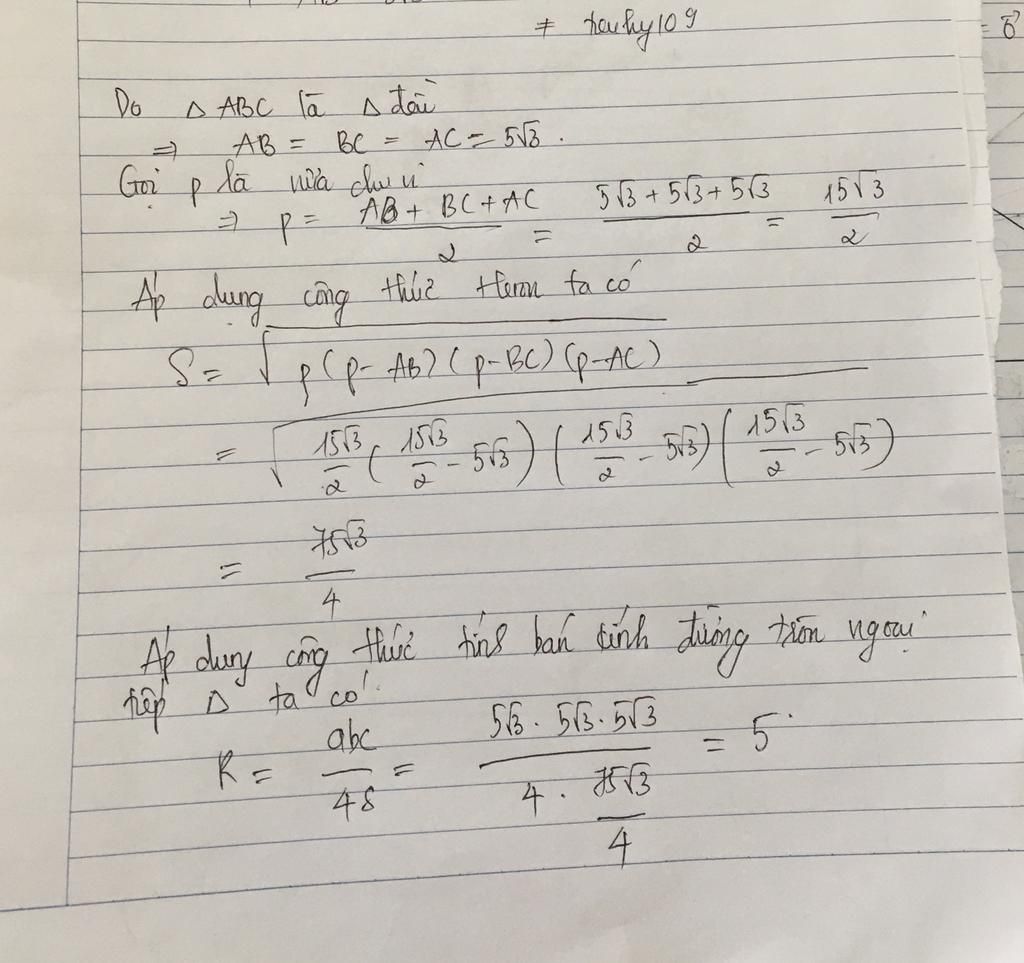 ≠ tauhy109
Do Δ ABC là Δ đều
⇒ AB = BC = AC = 5√3.
Gọi p là nửa chu vi
⇒ p = (AB + BC + AC)/2 = (5√3 + 5√3 + 5√3)/2 = 15√3/2
Áp dụng công thức Heron ta có
S = √(p(p - AB)(p - BC)(p - AC))
= √(15√3/2 (15√3/2 - 5√3)(15√3/2 - 5√3)(15√3/2 - 5√3))
= 75√3/4
Áp dụng công thức tính bán kính đường tròn ngoại
tiếp Δ ta có
R = abc/4S = (5√3 . 5√3 . 5√3)/(4 . 75√3/4) = 5